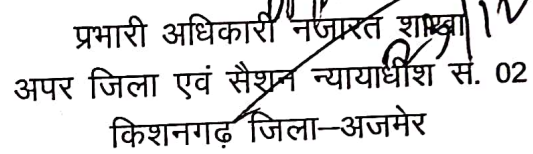 प्रभारी अधिकारी नजारत शाखा
अपर जिला एवं सैशन न्यायाधीश सं. 02
किशनगढ़ जिला–अजमेर